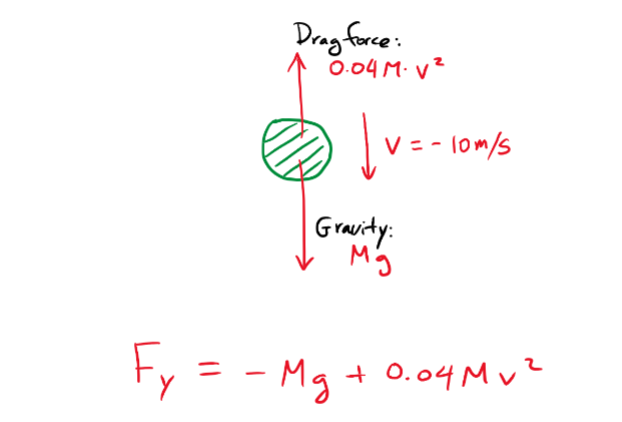 Drag force:
0.04 M · v²
v = - 10 m/s
Gravity:
Mg
Fy = - Mg + 0.04 M v²